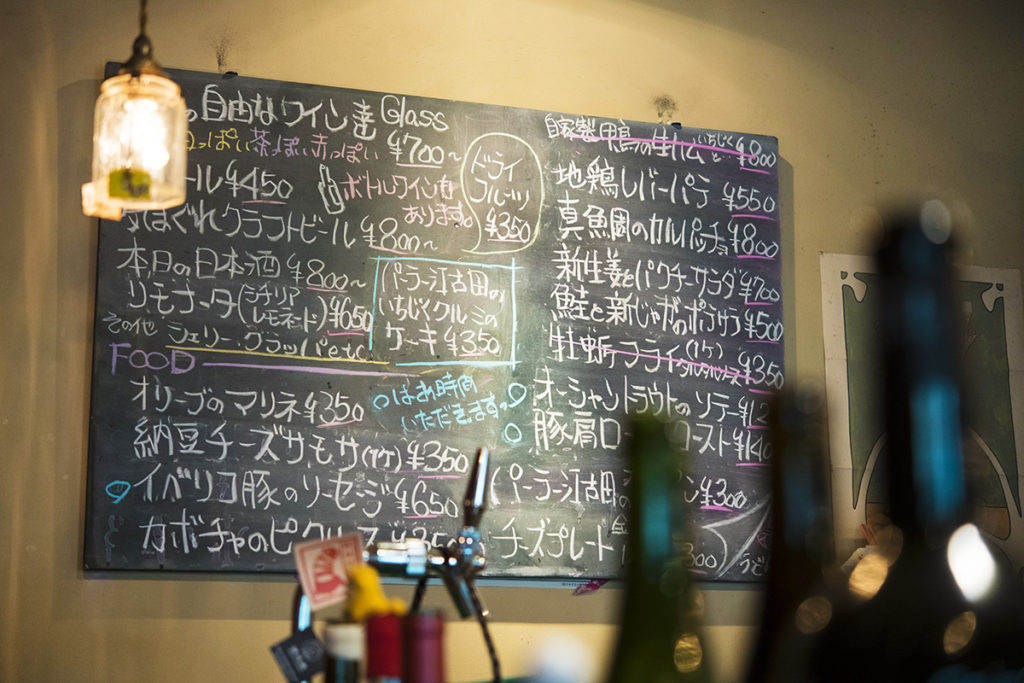 自由なワイン達 Glass
っぽい 茶っぽい 赤っぽい ¥700~
ール ¥450
ボトルワインも
あります。
ドライ
フルーツ
¥350
気まぐれクラフトビール ¥800~
本日の日本酒 ¥800~
リモナータ(シチリアレモネード) ¥650
その他 シェリー、グラッパ etc
パーラー江古田の
いちじくクルミの
ケーキ ¥350
FOOD
オリーブのマリネ ¥350
はお時間
いただきます。
納豆チーズサモサ(1ケ) ¥350
イベリコ豚のソーセージ ¥650
カボチャのピクルス
自家製鴨の生ハムといちじく ¥800
地鶏レバーパテ ¥550
真魚鯛のカルパッチョ ¥800
新生姜とパクチーサラダ ¥700
鮭と新じゃがのポテサラ ¥500
牡蛎フライ(1ケ) タルタルソース ¥350
オーシャントラウトのソテー
豚肩ロースト
(パーラー江古田の ¥300
チーズプレート